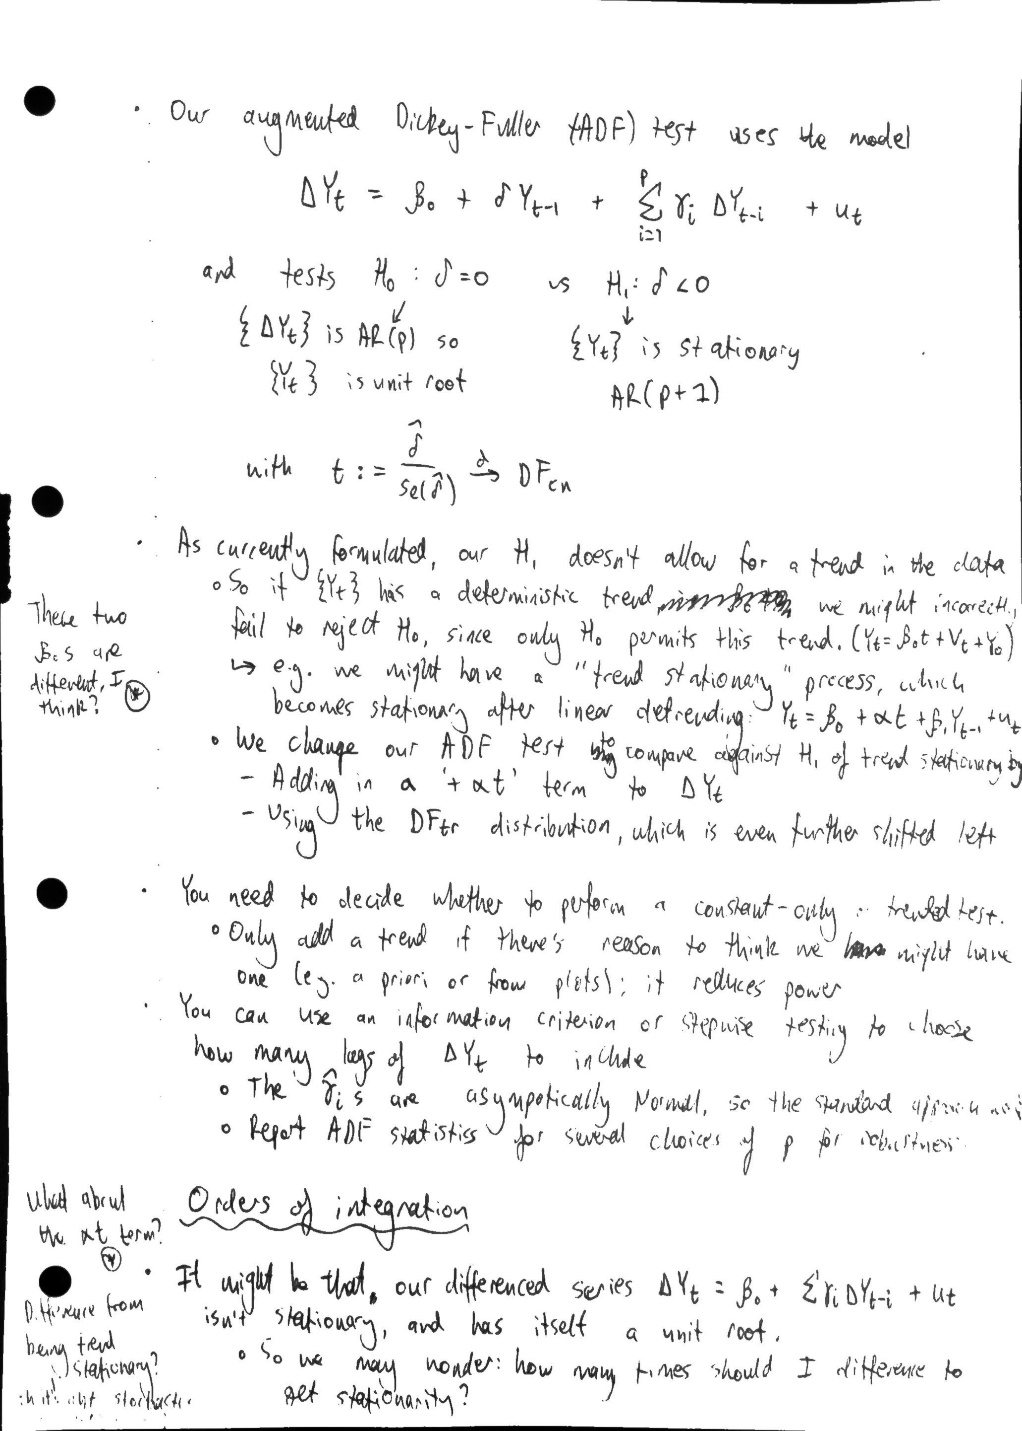 • Our augmented Dickey-Fuller (ADF) test uses the model
ΔYt = β0 + δYt-1 + Σ(i=1 to p) γi ΔYt-i + ut
and tests H0 : δ=0 vs H1 : δ<0
↙ ↓
{ΔYt} is AR(p) so {Yt} is stationary
{Yt} is unit root AR(p+1)
with t := δ̂ / se(δ̂) →d DFcn
• As currently formulated, our H1 doesn't allow for a trend in the data
◦ So if {Yt} has a deterministic trend we might incorrectly
fail to reject H0, since only H0 permits this trend. (Yt = β0t + Vt + Y0)
These two
β0s are
different, I
think? ⊛
↳ e.g. we might have a "trend stationary" process, which
becomes stationary after linear detrending: Yt = β0 + αt + β1Yt-1 + ut
◦ We change our ADF test to compare against H1 of trend stationary by
- Adding in a '+ αt' term to ΔYt
- Using the DFtr distribution, which is even further shifted left
• You need to decide whether to perform a constant-only or trended test.
◦ Only add a trend if there's reason to think we might have
one (e.g. a priori or from plots); it reduces power
• You can use an information criterion or stepwise testing to choose
how many lags of ΔYt to include
◦ The γ̂is are asympotically Normal, so the standard
◦ Report ADF statistics for several choices of p for robustness
What about
the αt term?
⊛
Orders of integration
• It might be that, our differenced series ΔYt = β0 + Σγi ΔYt-i + ut
isn't stationary, and has itself a unit root.
◦ So we may wonder: how many times should I difference to
get stationarity?
Difference from
being trend
stationary?